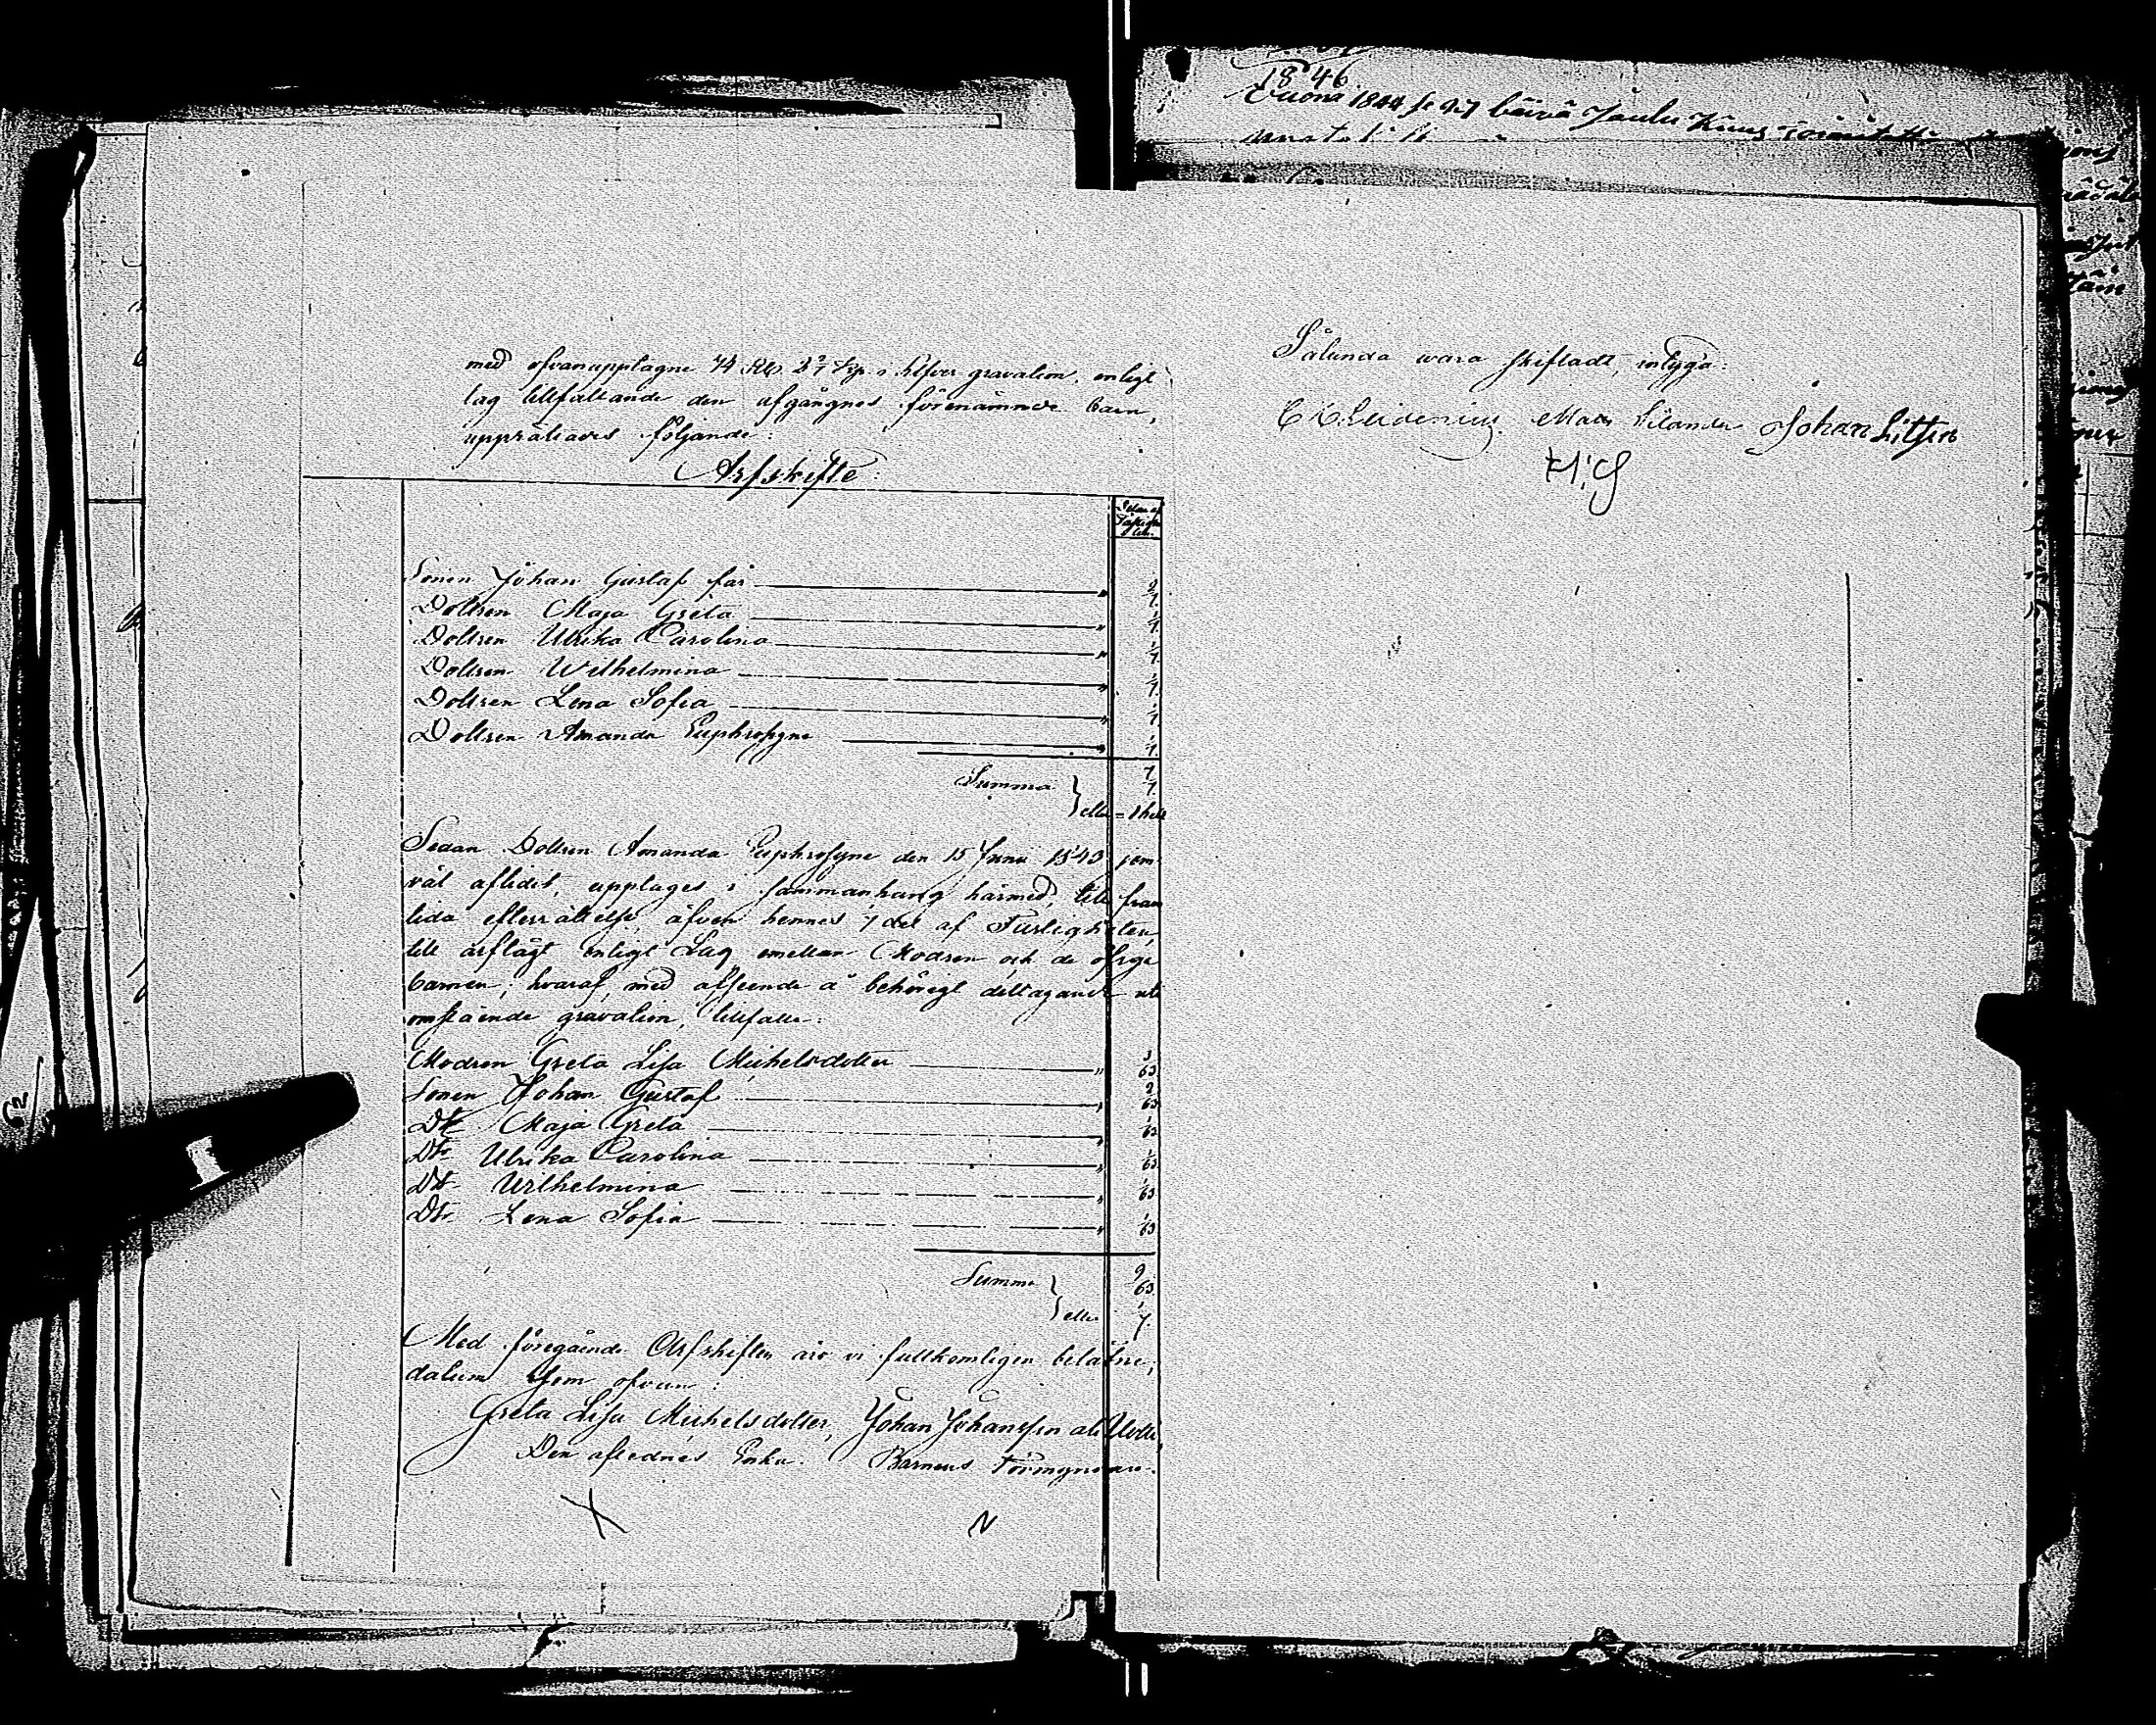 med ofvanupptagne 74 Rub. 2 2/7 kop. Silfver gravation, enligt
lag tillfallande den afgångnes förenämnde barn,
upprättades följande:
Arfskifte
Delar af
Sönen Johan Gustaf får " 2/7
Dottren Maja Greta " 1/7
Dottren Ulrika Carolina " 1/7
Dottren Wilhelmina " 1/7
Dottren Lena Sofia " 1/7
Dottren Amanda Euphrosyne " 1/7
Summa 7/7
eller = 1 hel
Sedan Dottren Amanda Euphrosyne den 15 Junii 1843 jem-
väl aflidit, upptages i sammanhang härmed, till fram
tida efterrättelse, äfven hennes 7 del af Fastigheten,
till arflägt enligt Lag emellan Modren och de öfrige
barnen; hvaraf, med afseende å behörigt deltagande uti
omstående gravation, tillfaller:
Modren Greta Lisa Michelsdotter " 3/63
Sonen Johan Gustaf " 2/63
Dtr Maja Greta " 1/63
Dtr Ulrika Carolina " 1/63
Dtr Wilhelmina " 1/63
Dtr Lena Sofia " 1/63
Summa 9/63
eller 1/7
Med föregående Arfskiften äro vi fullkomligen belåtne;
datum som ofvan:
Greta Lisa Michelsdotter, Johan Johansson
Den aflednes Enka. Barnens Förmyndare.
X
1846
Vuona 1844 se 27 Jaulu
Sålunda wara skiftadt, intyga:
Leidenius. Mats Johan